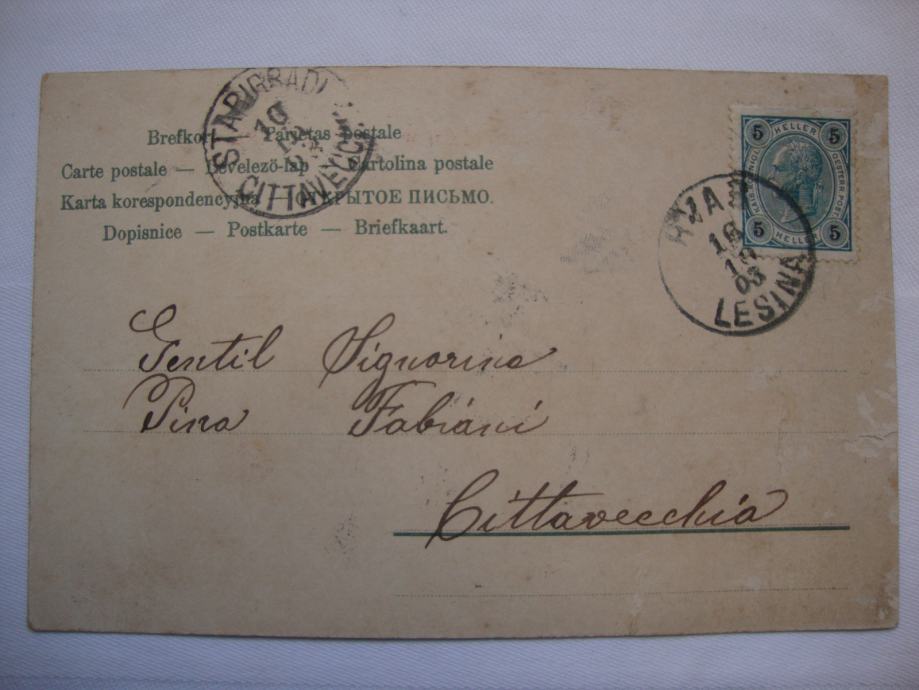 STARIGRAD
CITTAVECCHIA
Brefkort — Tarjetas postale
Carte postale — Levelező-lap — Cartolina postale
Karta korespondencyjna — ОТКРЫТОЕ ПИСЬМО.
Dopisnice — Postkarte — Briefkaart.
5 HELLER 5
5 HELLER 5
HVAR
18
10
03
LESINA
Gentil Signorina
Pina Fabiani
Cittavecchia